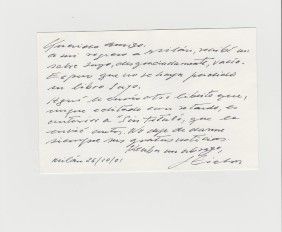 Querido amigo:
a mi regreso a Milán, recibí un
sobre suyo, desgraciadamente, vacío.
Espero que no se haya perdido
un libro suyo.
Aquí le envío otro libreto que,
aunque editado con retardo, es
anterior a "Sin título", que le
envié antes. No deje de darme
siempre sus gratas noticias
un abrazo,
Milán 26/10/01